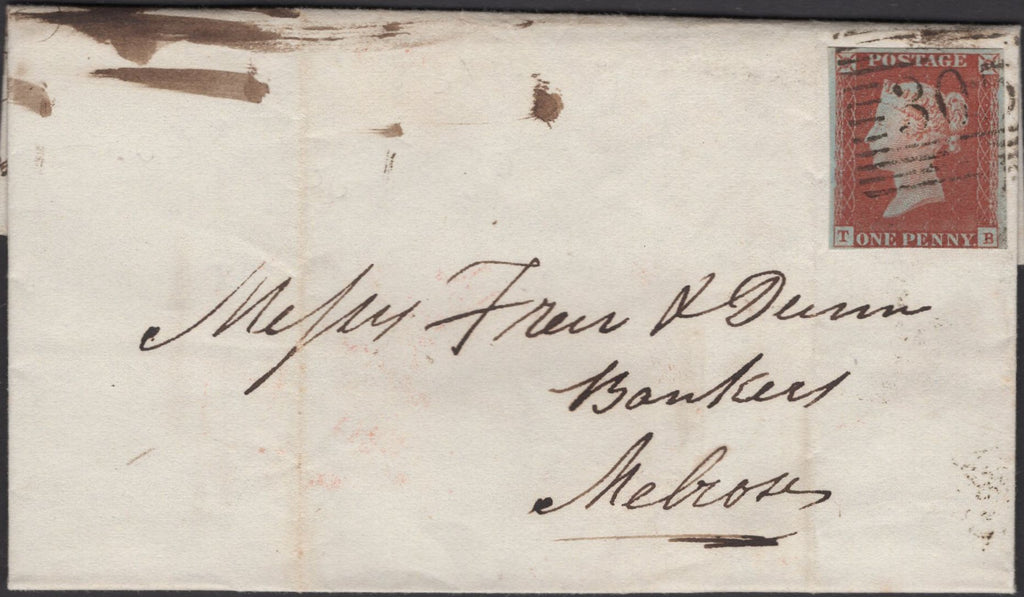 POSTAGE
30
T ONE PENNY. B
Messrs Freer & Dunn
Bankers
Melrose